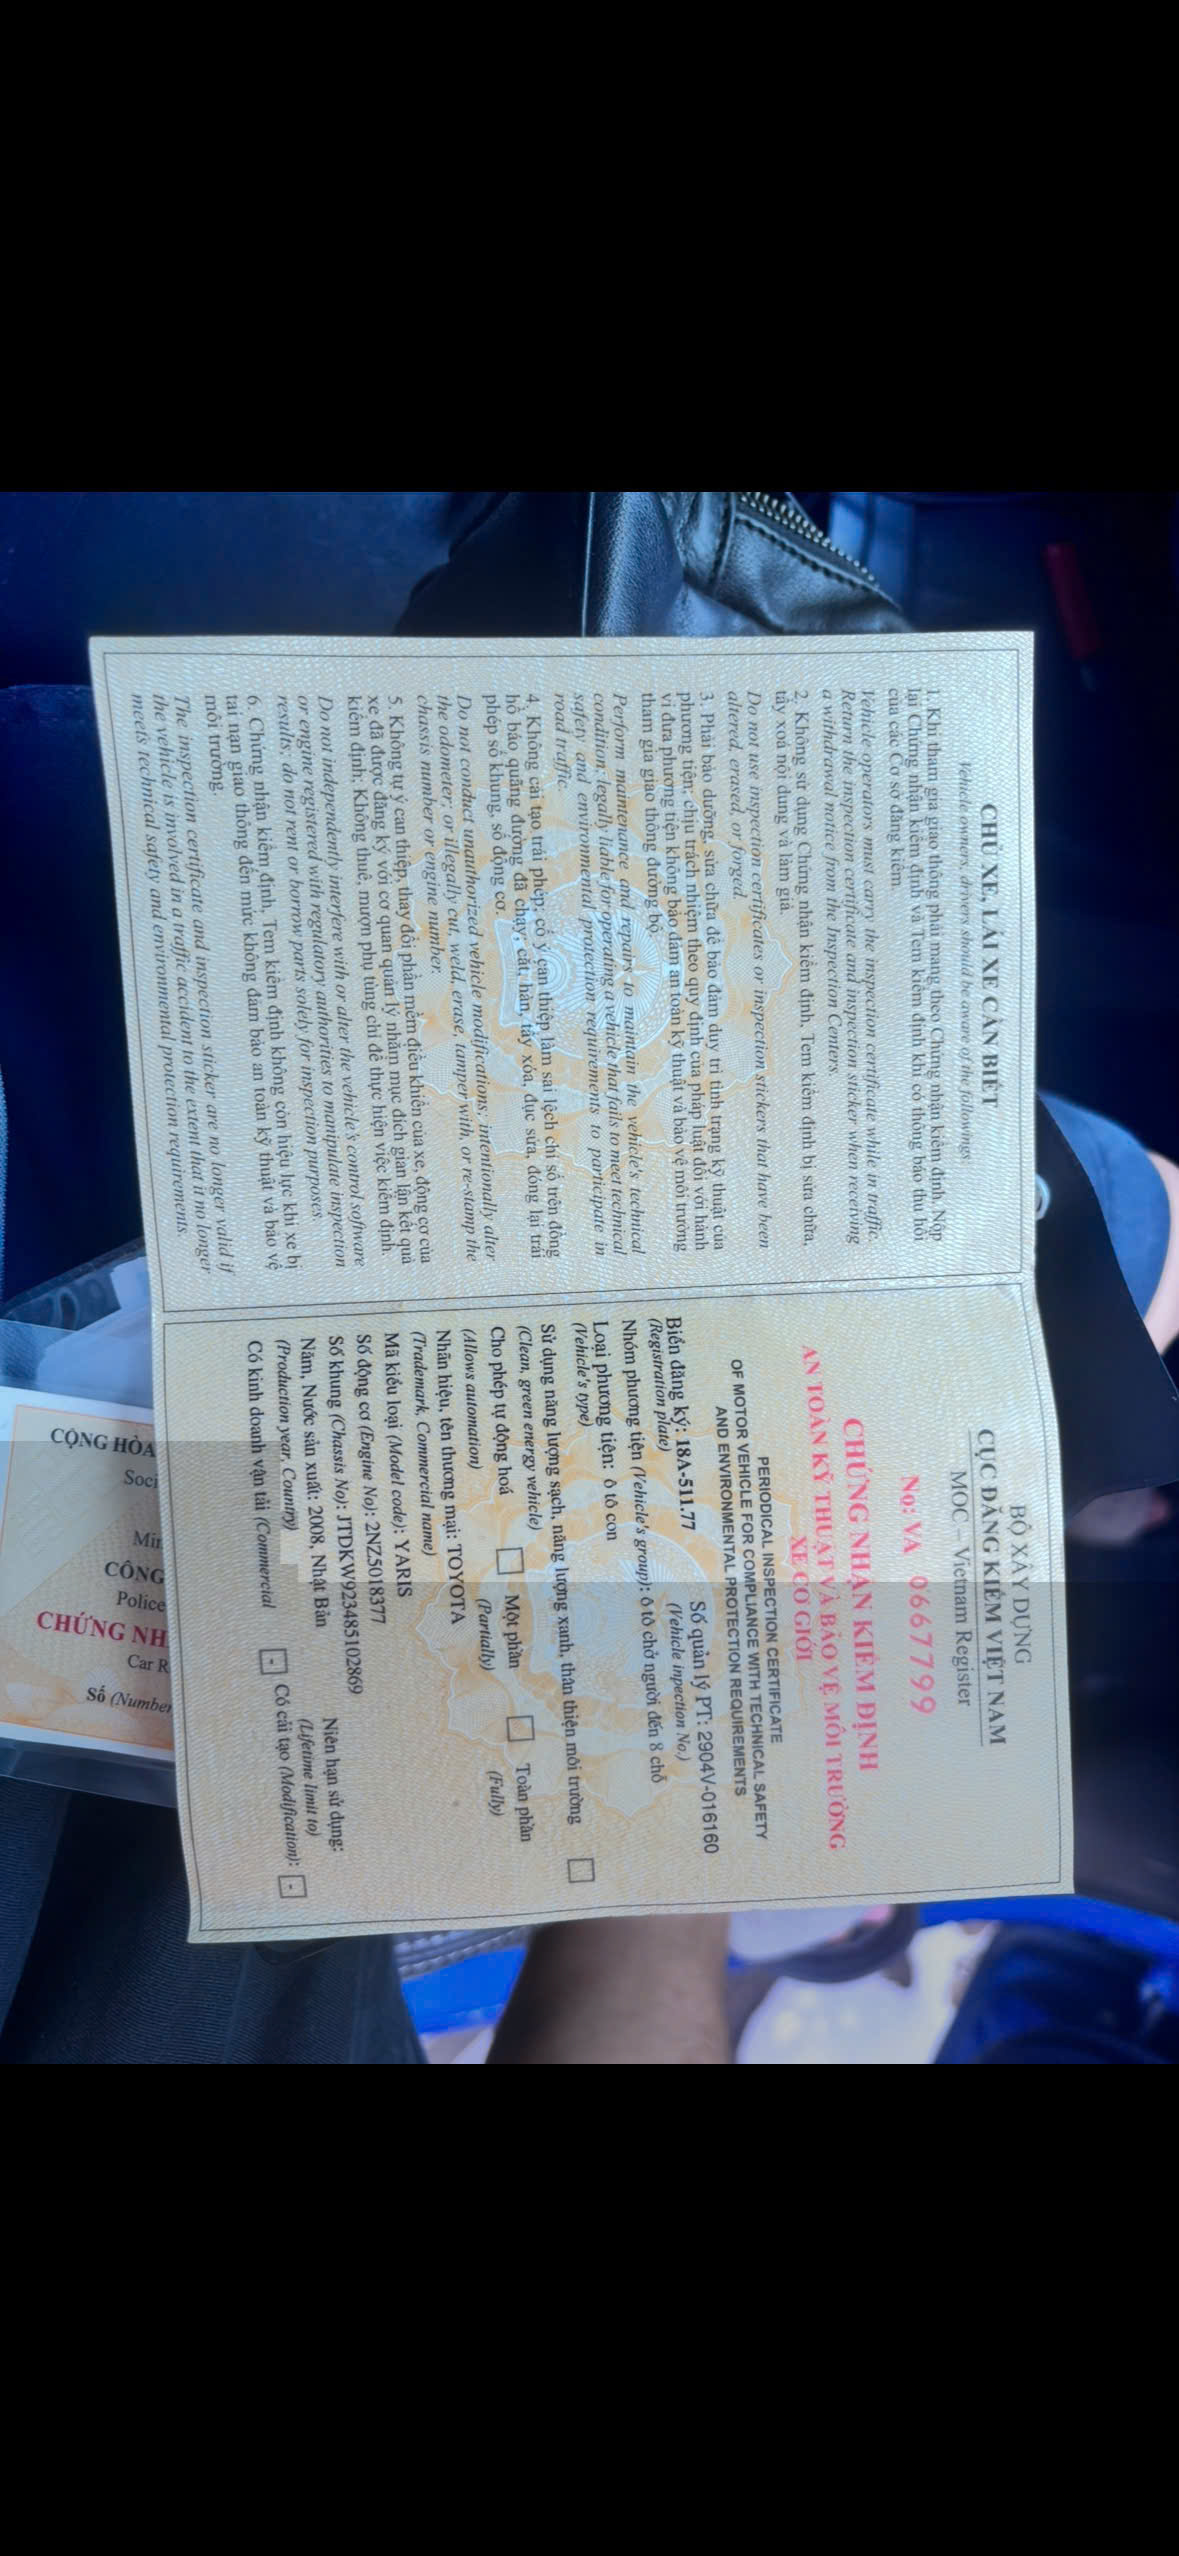 CHỦ XE, LÁI XE CẦN BIẾT
Vehicle owners, drivers should be aware of the followings:
1. Khi tham gia giao thông phải mang theo Chứng nhận kiểm định. Nộp
lại Chứng nhận kiểm định và Tem kiểm định khi có thông báo thu hồi
của các Cơ sở đăng kiểm.
Vehicle operators must carry the inspection certificate while in traffic.
Return the inspection certificate and inspection sticker when receiving
a withdrawal notice from the Inspection Centers
2. Không sử dụng Chứng nhận kiểm định, Tem kiểm định bị sửa chữa,
tẩy xoá nội dung và làm giả.
Do not use inspection certificates or inspection stickers that have been
altered, erased, or forged.
3. Phải bảo dưỡng, sửa chữa để bảo đảm duy trì tình trạng kỹ thuật của
phương tiện; chịu trách nhiệm theo quy định của pháp luật đối với hành
vi đưa phương tiện không bảo đảm an toàn kỹ thuật và bảo vệ môi trường
tham gia giao thông đường bộ.
Perform maintenance and repairs to maintain the vehicle's technical
condition; legally liable for operating a vehicle that fails to meet technical
safety and environmental protection requirements to participate in
road traffic.
4. Không cải tạo trái phép; cố ý can thiệp làm sai lệch chỉ số trên đồng
hồ báo quãng đường đã chạy; cắt, hàn, tẩy xóa, đục sửa, đóng lại trái
phép số khung, số động cơ.
Do not conduct unauthorized vehicle modifications; intentionally alter
the odometer; or illegally cut, weld, erase, tamper with, or re-stamp the
chassis number or engine number.
5. Không tự ý can thiệp, thay đổi phần mềm điều khiển của xe, động cơ của
xe đã được đăng ký với cơ quan quản lý nhằm mục đích gian lận kết quả
kiểm định; Không thuê, mượn phụ tùng chỉ để thực hiện việc kiểm định.
Do not independently interfere with or alter the vehicle's control software
or engine registered with regulatory authorities to manipulate inspection
results; do not rent or borrow parts solely for inspection purposes.
6. Chứng nhận kiểm định, Tem kiểm định không còn hiệu lực khi xe bị
tai nạn giao thông đến mức không đảm bảo an toàn kỹ thuật và bảo vệ
môi trường.
The inspection certificate and inspection sticker are no longer valid if
the vehicle is involved in a traffic accident to the extent that it no longer
meets technical safety and environmental protection requirements.
BỘ XÂY DỰNG
CỤC ĐĂNG KIỂM VIỆT NAM
MOC - Vietnam Register
No: VA 0667799
CHỨNG NHẬN KIỂM ĐỊNH
AN TOÀN KỸ THUẬT VÀ BẢO VỆ MÔI TRƯỜNG
XE CƠ GIỚI
PERIODICAL INSPECTION CERTIFICATE
OF MOTOR VEHICLE FOR COMPLIANCE WITH TECHNICAL SAFETY
AND ENVIRONMENTAL PROTECTION REQUIREMENTS
Biển đăng ký: 18A-511.77 Số quản lý PT: 2904V-016160
(Registration plate) (Vehicle inpection No.)
Nhóm phương tiện (Vehicle's group): ô tô chở người đến 8 chỗ
Loại phương tiện: ô tô con
(Vehicle's type)
Sử dụng năng lượng sạch, năng lượng xanh, thân thiện môi trường
(Clean, green energy vehicle)
Cho phép tự động hoá Một phần Toàn phần
(Allows automation) (Partially) (Fully)
Nhãn hiệu, tên thương mại: TOYOTA
(Trademark, Commercial name)
Mã kiểu loại (Model code): YARIS
Số động cơ (Engine No): 2NZ5018377
Số khung (Chassis No): JTDKW923485102869
Năm, Nước sản xuất: 2008, Nhật Bản Niên hạn sử dụng:
(Production year, Country) (Lifetime limit to)
Có kinh doanh vận tải (Commercial - Có cải tạo (Modification): -
CỘNG HÒA
Soci
Min
CÔNG
Police
CHỨNG NH
Car R
Số (Number